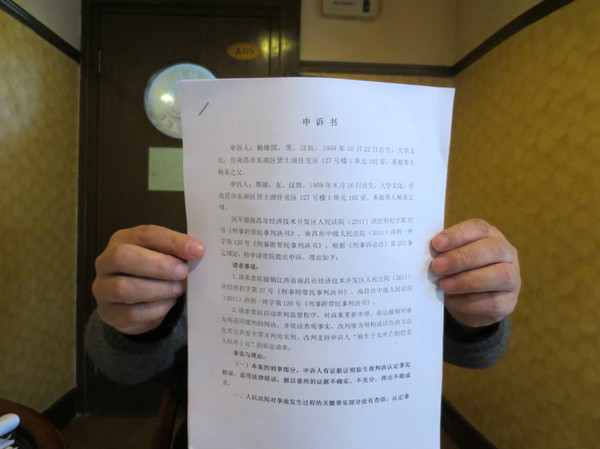 A09
申诉书
申诉人：杨维国，男，汉族，1959年10月22日出生，大学文
化，住南昌市东湖区贤士湖住宅区127号楼1单元102室，系被害人
杨菲之父。
申诉人：蔡丽，女，汉族，1959年6月16日出生，大学文化，住
南昌市东湖区贤士湖住宅区127号楼1单元102室，系被害人杨菲之
母。
因不服南昌市经济技术开发区人民法院（2011）洪经刑初字第37
号《刑事附带民事判决书》、南昌市中级人民法院（2011）洪刑一终
字第120号《刑事附带民事判决书》，根据《刑事诉讼法》第203条
之规定，特申请贵院提出申诉，理由如下：
请求事项：
1、请求贵院撤销江西省南昌市经济技术开发区人民法院（2011）
洪经刑初字第37号《刑事附带民事判决书》、南昌市中级人民法院
（2011）洪刑一终字第120号《刑事附带民事判决书》；
2、请求贵院启动审判监督程序，对该案重新审理，
人民币1元”的诉讼请求。
事实与理由：
（一）本案的刑事部分，申诉人有证据证明原生效判决认定事实
错误、适用法律错误，据以量刑的证据不确实、不充分，理由不能成
立。
一、人民法院对事故发生过程的关键事实部分没有查清，认定事